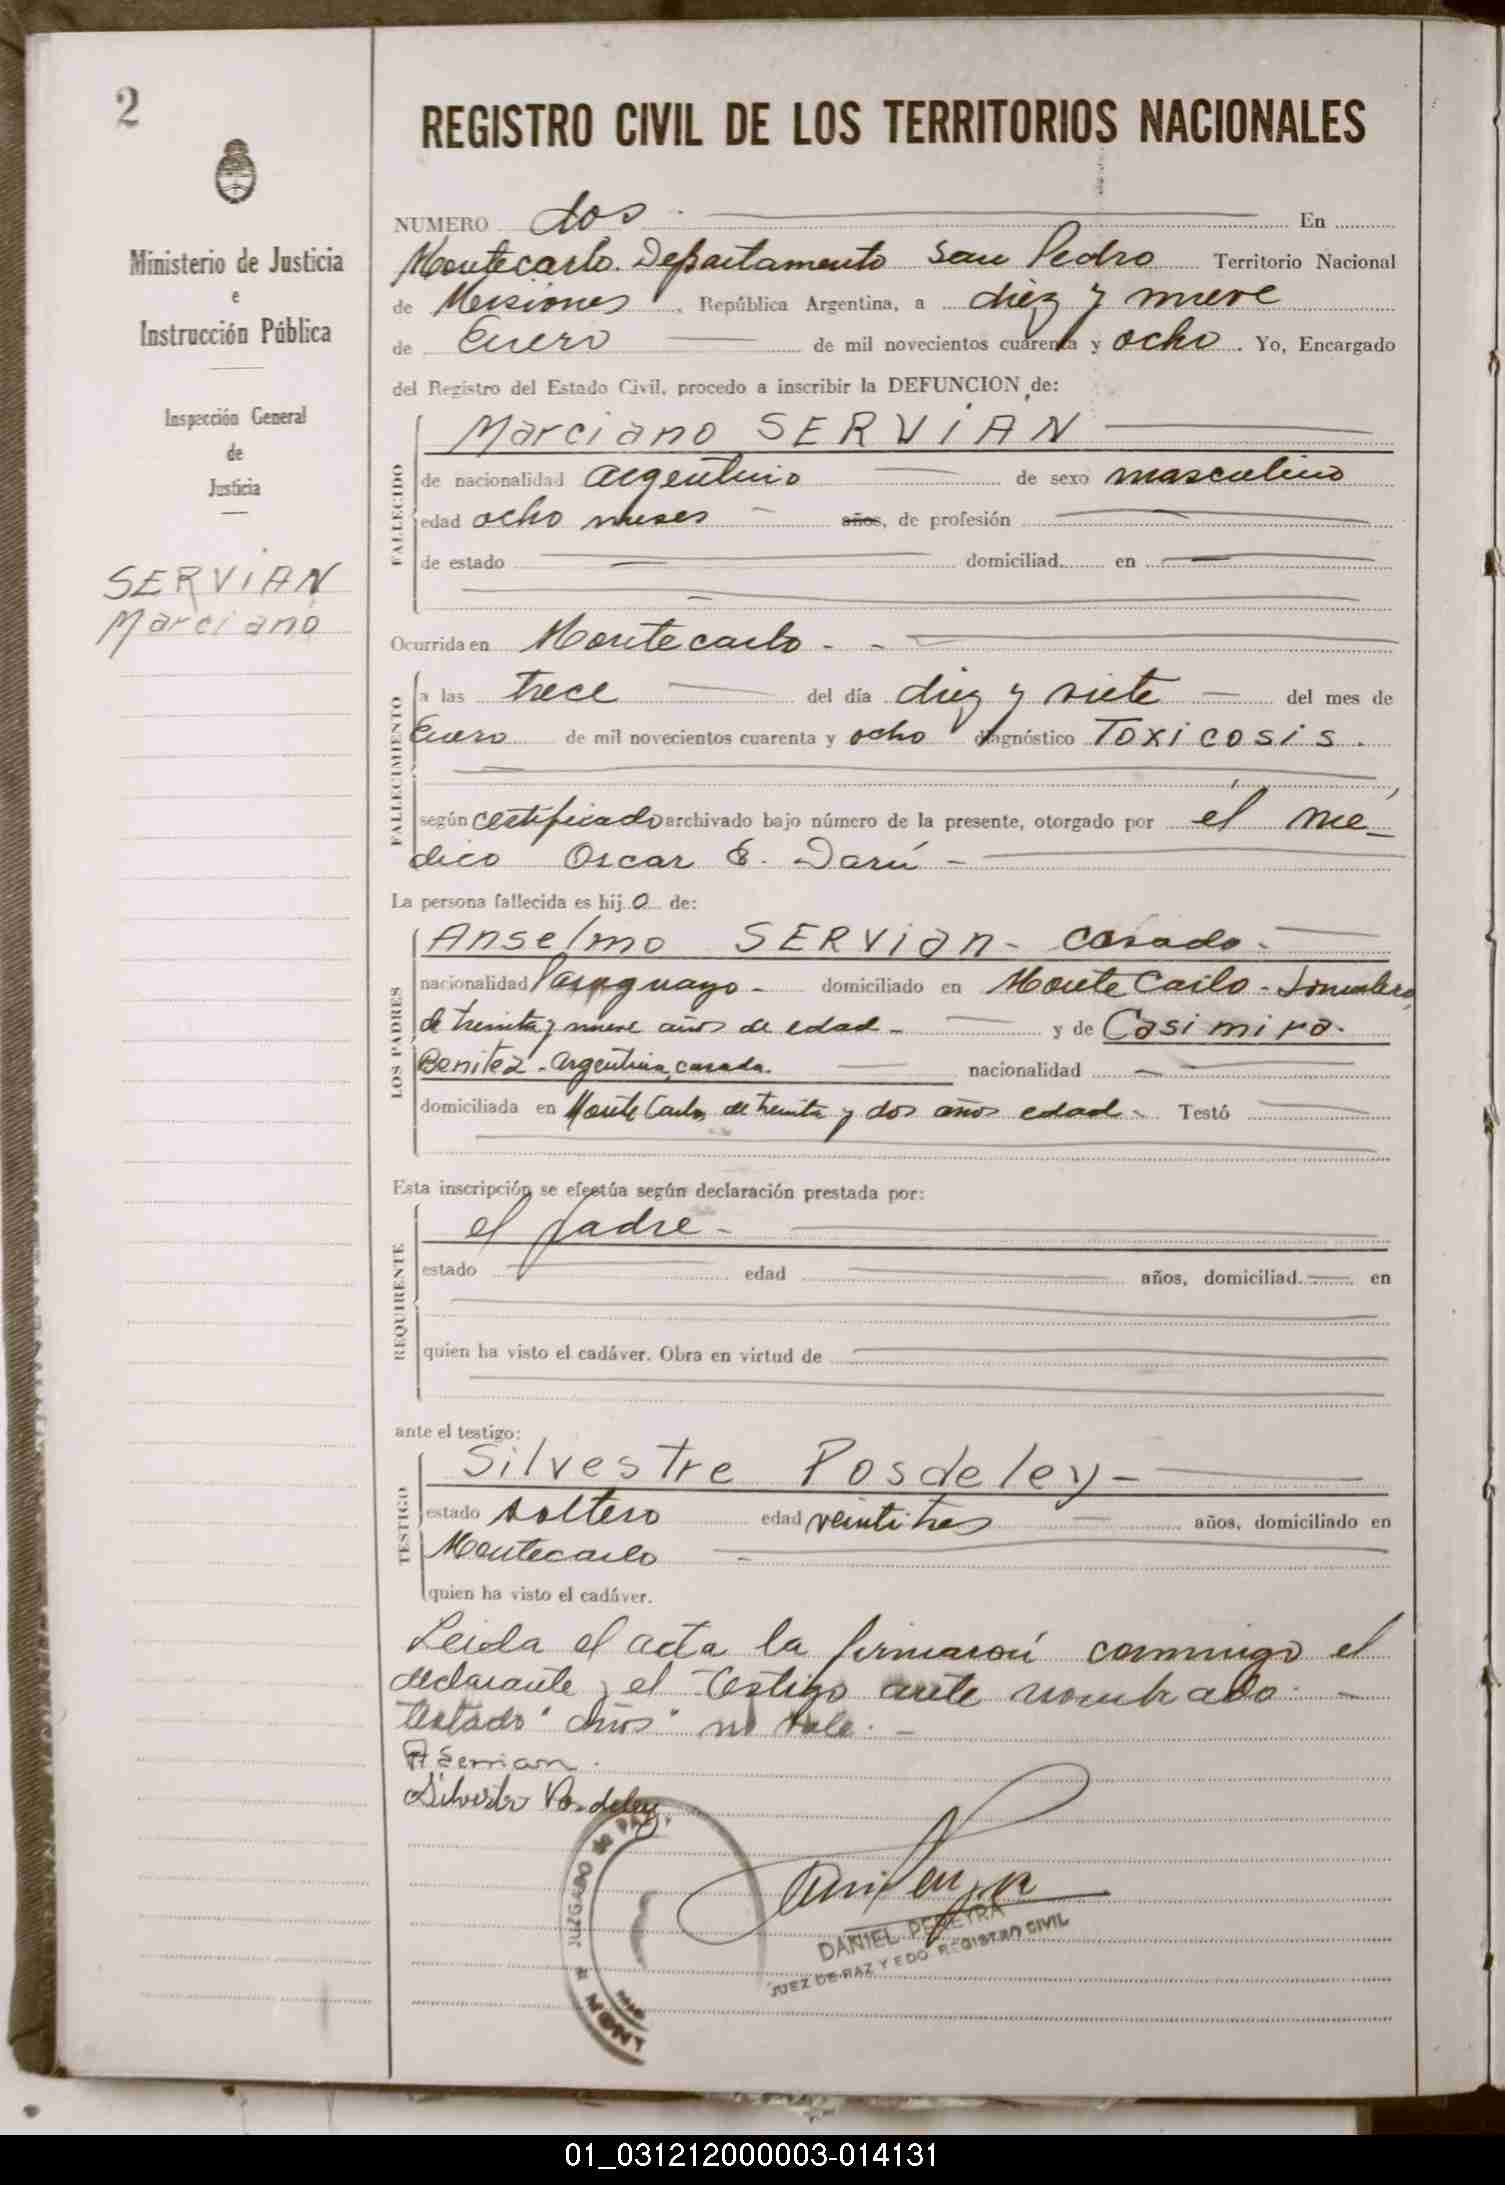 2
Ministerio de Justicia
e
Instrucción Pública
Inspección General
de
Justicia
SERViAN
Marciano
REGISTRO CIVIL DE LOS TERRITORIOS NACIONALES
NUMERO dos En
Montecarlo. Departamento San Pedro Territorio Nacional
de Misiones, República Argentina, a diez y nueve
de Enero de mil novecientos cuarenta y ocho. Yo, Encargado
del Registro del Estado Civil, procedo a inscribir la DEFUNCION de:
FALLECIDO
Marciano SERViAN
de nacionalidad argentino de sexo masculino
edad ocho meses años, de profesión
de estado domiciliad en
Ocurrida en Montecarlo
FALLECIMIENTO
a las trece del día diez y siete del mes de
Enero de mil novecientos cuarenta y ocho diagnóstico Toxicosis.
según certificado archivado bajo número de la presente, otorgado por el mé-
dico Oscar E. Darú
La persona fallecida es hijo de:
LOS PADRES
Anselmo SERVian - casado.
nacionalidad Paraguayo - domiciliado en Monte Carlo -
de treinta y nueve años de edad - y de Casimira
Benitez - argentina, casada. nacionalidad
domiciliada en Monte Carlo, de treinta y dos años edad - Testó
Esta inscripción se efectúa según declaración prestada por:
REQUIRENTE
el padre -
estado edad años, domiciliad en
quien ha visto el cadáver. Obra en virtud de
ante el testigo:
TESTIGO
Silvestre Posdeley -
estado soltero edad veintitres años, domiciliado en
Montecarlo
quien ha visto el cadáver.
Leida el acta la firmaron conmigo el
declarante y el testigo ante nombrado. -
Testado "años" no vale. -
A Servian.
Silvestre Posdeley
JUZGADO de PAZ
DANIEL PEREYRA
JUEZ DE PAZ Y EDO REGISTRO CIVIL
01_031212000003-014131